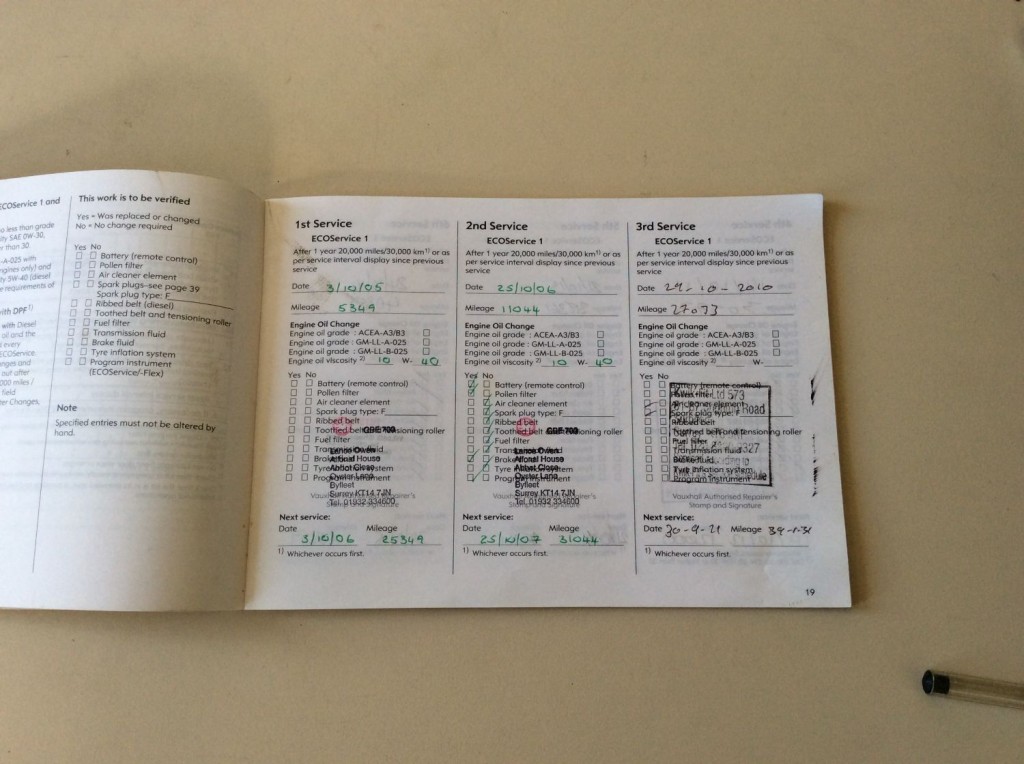 ECOService 1 and
no less than grade
ty SAE 0W-30,
er than 30.
-A-025 with
ngines only) and
ty 5W-40 (diesel
e requirements of
with DPF1)
with Diesel
oil and the
every
ECOService
nges and
out after
000 miles /
field
ter Changes,
This work is to be verified
Yes = Was replaced or changed
No = No change required
Yes No
Battery (remote control)
Pollen filter
Air cleaner element
Spark plugs–see page 39
Spark plug type: F
Ribbed belt (diesel)
Toothed belt and tensioning roller
Fuel filter
Transmission fluid
Brake fluid
Tyre inflation system
Program instrument
(ECOService/-Flex)
Note
Specified entries must not be altered by
hand.
1st Service
ECOService 1
After 1 year 20,000 miles/30,000 km1) or as
per service interval display since previous
service
Date 3/10/05
Mileage 5349
Engine Oil Change
Engine oil grade : ACEA-A3/B3
Engine oil grade : GM-LL-A-025
Engine oil grade : GM-LL-B-025
Engine oil viscosity 2) 10 W- 40
Yes No
Battery (remote control)
Pollen filter
Air cleaner element
Spark plug type: F
Ribbed belt
Toothed belt tensioning roller
Fuel filter
Transmission fluid
Brake fluid
Tyre inflation system
Program instrument
Lance Owen
House
Abbot Close
Oyster Lane
Byfleet
Surrey KT14 7JN
Tel. 01932 334000
Vauxhall Authorised Repairer's
Stamp and Signature
Next service:
Date Mileage
3/10/06 25349
1) Whichever occurs first.
2nd Service
ECOService 1
After 1 year 20,000 miles/30,000 km1) or as
per service interval display since previous
service
Date 25/10/06
Mileage 11044
Engine Oil Change
Engine oil grade : ACEA-A3/B3
Engine oil grade : GM-LL-A-025
Engine oil grade : GM-LL-B-025
Engine oil viscosity 2) 10 W- 40
Yes No
Battery (remote control)
Pollen filter
Air cleaner element
Spark plug type: F
Ribbed belt
Toothed belt tensioning roller
Fuel filter
Transmission fluid
Brake fluid
Tyre inflation system
Program instrument
Lance Owen
House
Abbot Close
Oyster Lane
Byfleet
Surrey KT14 7JN
Tel. 01932 334000
Vauxhall Authorised Repairer's
Stamp and Signature
Next service:
Date Mileage
25/10/07 31044
1) Whichever occurs first.
3rd Service
ECOService 1
After 1 year 20,000 miles/30,000 km1) or as
per service interval display since previous
service
Date 29-10-2010
Mileage 27073
Engine Oil Change
Engine oil grade : ACEA-A3/B3
Engine oil grade : GM-LL-A-025
Engine oil grade : GM-LL-B-025
Engine oil viscosity 2) W-
Yes No
Battery (remote control)
Pollen filter
Air cleaner element
Spark plug type: F
Ribbed belt
Toothed belt and tensioning roller
Fuel filter
Transmission fluid
Brake fluid
Tyre inflation system
Program instrument
Ltd 573
Road
Vauxhall Authorised Repairer's
Stamp and Signature
Next service:
Date 30-9-21 Mileage
1) Whichever occurs first.
19